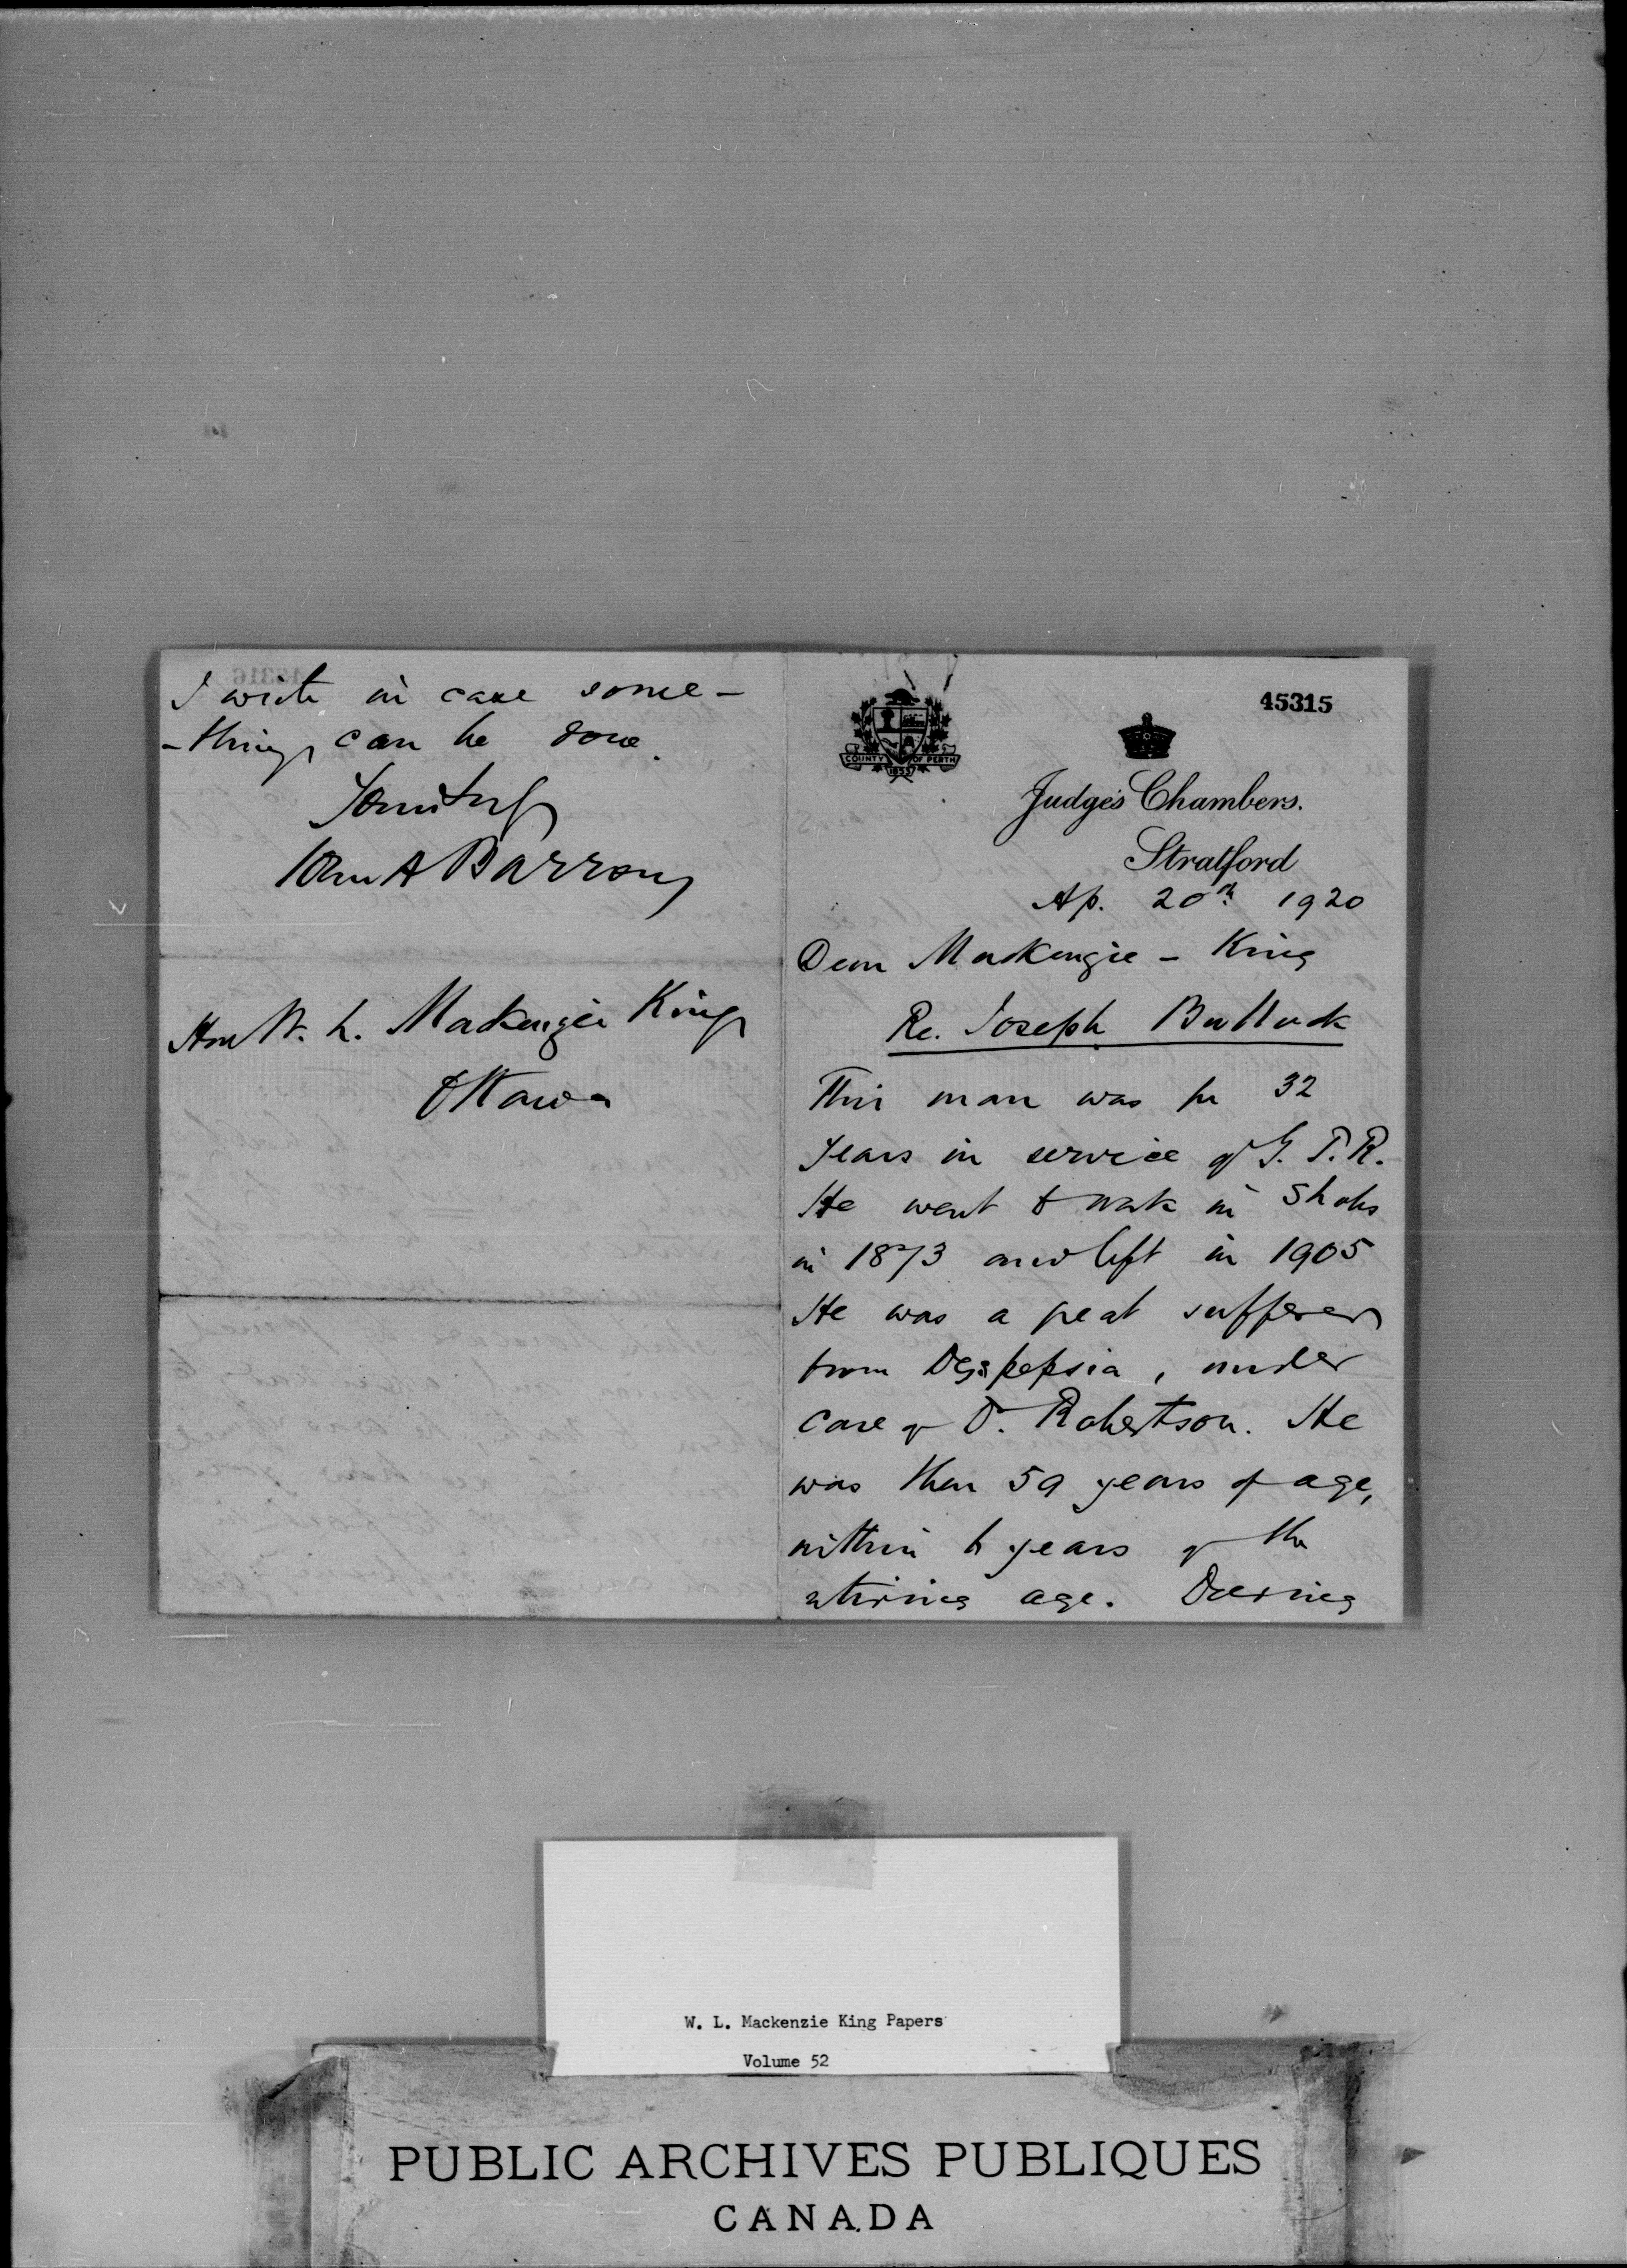 I write in case some-
-thing can be done.
Yours truly
John A Barron
Hon W. L. Mackenzie King
Ottawa
45315
COUNTY OF PERTH
1853
Judge's Chambers.
Stratford
Ap. 20th 1920
Dear Mackenzie - King
Re. Joseph Bullock
This man was for 32
years in service of G. T. R.
He went to work in shops
in 1873 and left in 1905
He was a great sufferer
from Dyspepsia, under
care of Dr. Robertson. He
was then 59 years of age,
within 6 years of the
retiring age. During
W. L. Mackenzie King Papers
Volume 52
PUBLIC ARCHIVES PUBLIQUES
CANADA